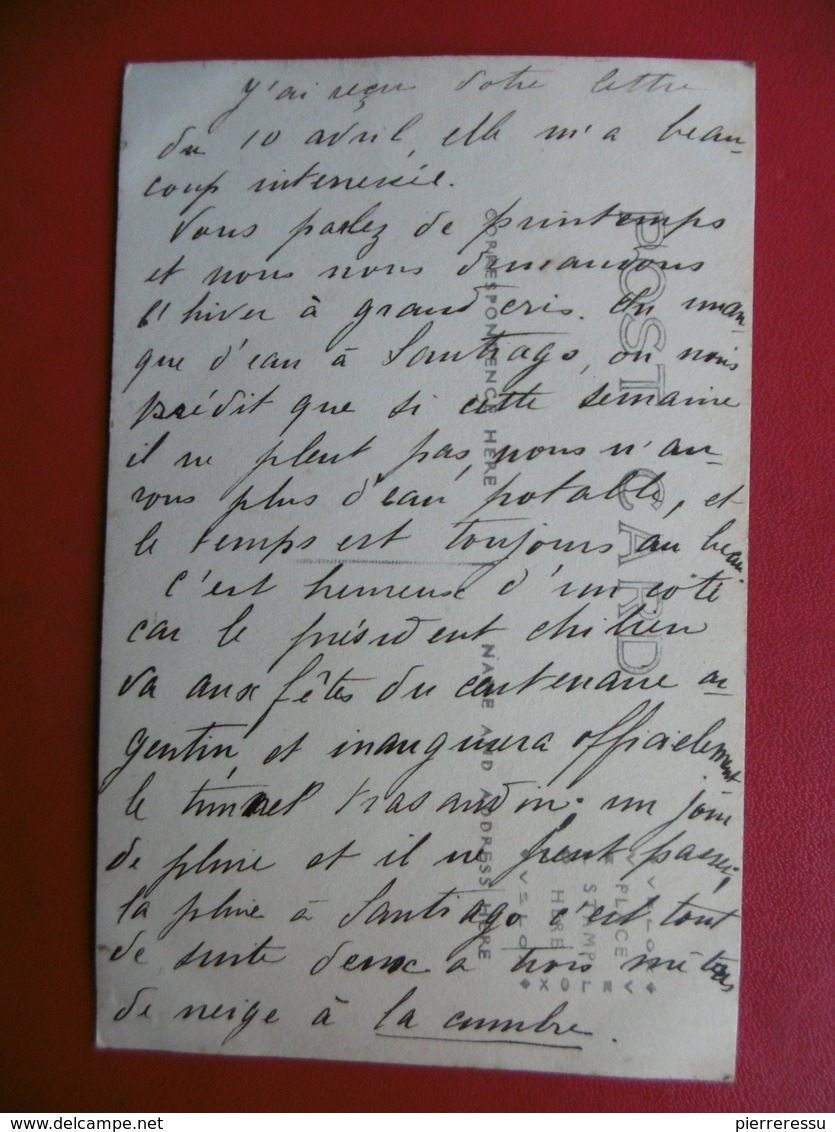 J'ai reçu votre lettre
du 10 avril, elle m'a beau-
coup interessée.
Vous parlez de printemps
et nous nous demandons
l'hiver à grand cris. On man
que d'eau à Santiago, on nous
prédit que si cette semaine
il ne pleut pas, nous n'au-
rons plus d'eau potable, et
le temps est toujours au beau.
c'est heureux d'un coté
car le président chilien
va aux fêtes du centenaire ar
gentin, et inaugurera officielement
le tunnel trasandin. un jour
de pluie et il ne peut passer,
la pluie à Santiago c'est tout
de suite deux a trois mètres
de neige à la cumbre.
POST CARD
CORRESPONDENCE HERE
NAME AND ADDRESS HERE
PLACE
STAMP
HERE
VELOX
delcampe.net
pierreressu